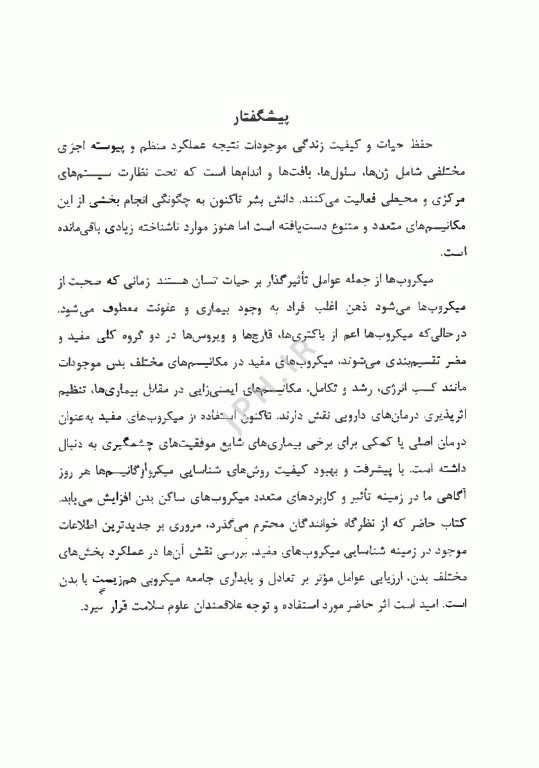 پیشگفتار
حفظ حیات و کیفیت زندگی موجودات نتیجه عملکرد منظم و پیوسته اجزی
مختلفی شامل ژن‌ها، سئول‌ها، بافت‌ها و اندام‌ها است که تحت نظارت سیستم‌های
مرکزی و محیطی فعالیت می‌کنند. دانش بشر تاکنون به چگونگی انجام بخشی از این
مکانیسم‌های متعدد و متنوع دست‌یافته است اما هنوز موارد ناشناخته زیادی باقی‌مانده
است.
میکروب‌ها از جمله عواملی تأثیرگذار بر حیات نسان هستند زمانی که صحبت از
میکروب‌ها می‌شود ذهن اغلب فراد به وجود بیماری و عفونت معطوف می‌شود.
درحالی‌که میکروب‌ها اعم از باکتری‌ها، قارچ‌ها و ویروس‌ها در دو گروه کلی مفید و
مضر تقسیم‌بندی می‌شوند. میکروب‌های مفید در مکانیسم‌های مختلف بدن موجودات
مانند کسب انرژی، رشد و تکامل، مکانیسم‌های ایمنی‌زایی در مقابل بیماری‌ها، تنظیم
اثرپذیری درمان‌های دارویی نقش دارند. تاکنون استفاده از میکروب‌های مفید به‌عنوان
درمان اصلی یا کمکی برای برخی بیماری‌های شایع موفقیت‌های چشمگیری به دنبال
داشته است. با پیشرفت و بهبود کیفیت روش‌های شناسایی میکروارگانیسم‌ها هر روز
آگاهی ما در زمینه تأثیر و کاربردهای متعدد میکروب‌های ساکن بدن افزایش می‌یابد.
کتاب حاضر که از نظرگاه خوانندگان محترم می‌گذرد، مروری بر جدیدترین اطلاعات
موجود در زمینه شناسایی میکروب‌های مفید، بررسی نقش آن‌ها در عملکرد بخش‌های
مختلف بدن، ارزیابی عوامل مؤثر بر تعادل و پایداری جامعه میکروبی همزیست با بدن
است. امید است اثر حاضر مورد استفاده و توجه علاقمندان علوم سلامت قرار گیرد.
JPN.IR